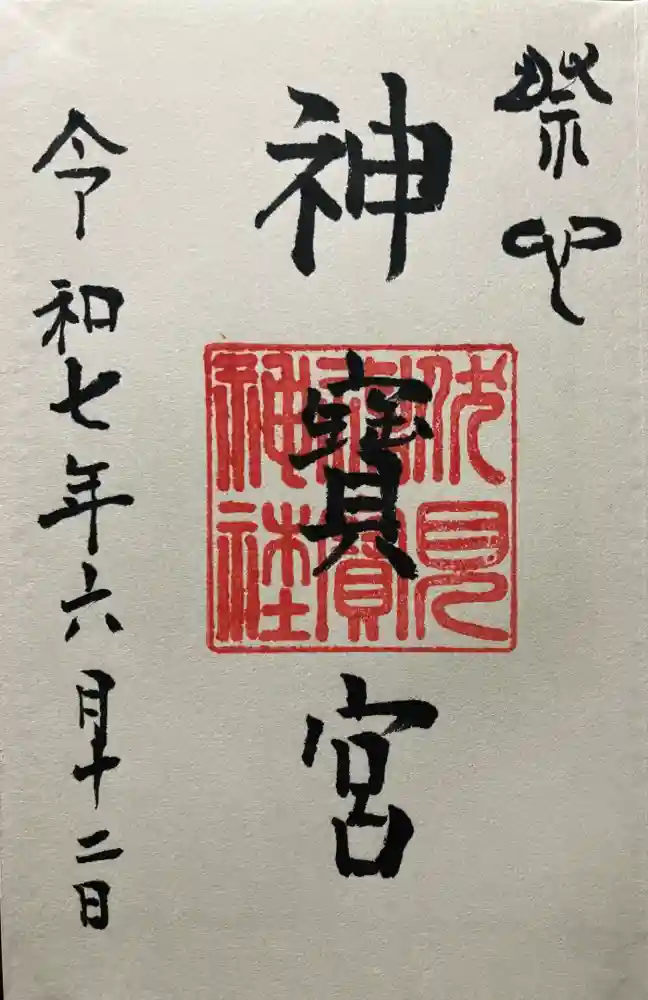 神寶宮
伏見神寶神社
令和七年六月十二日